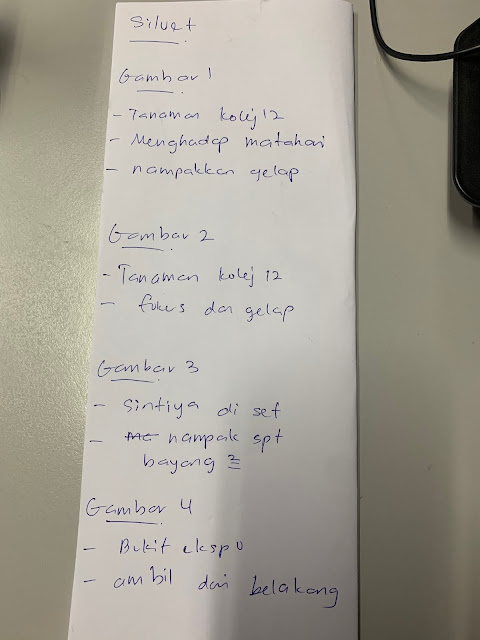 Siluet
Gambar 1
- Tanaman kolej 12
- Menghadap matahari
- nampakkan gelap
Gambar 2
- Tanaman kolej 12
- fokus dan gelap
Gambar 3
- Sintiya di set
- nampak spt
bayang 2
Gambar 4
- Bukit ekspo
- ambil dari belakang